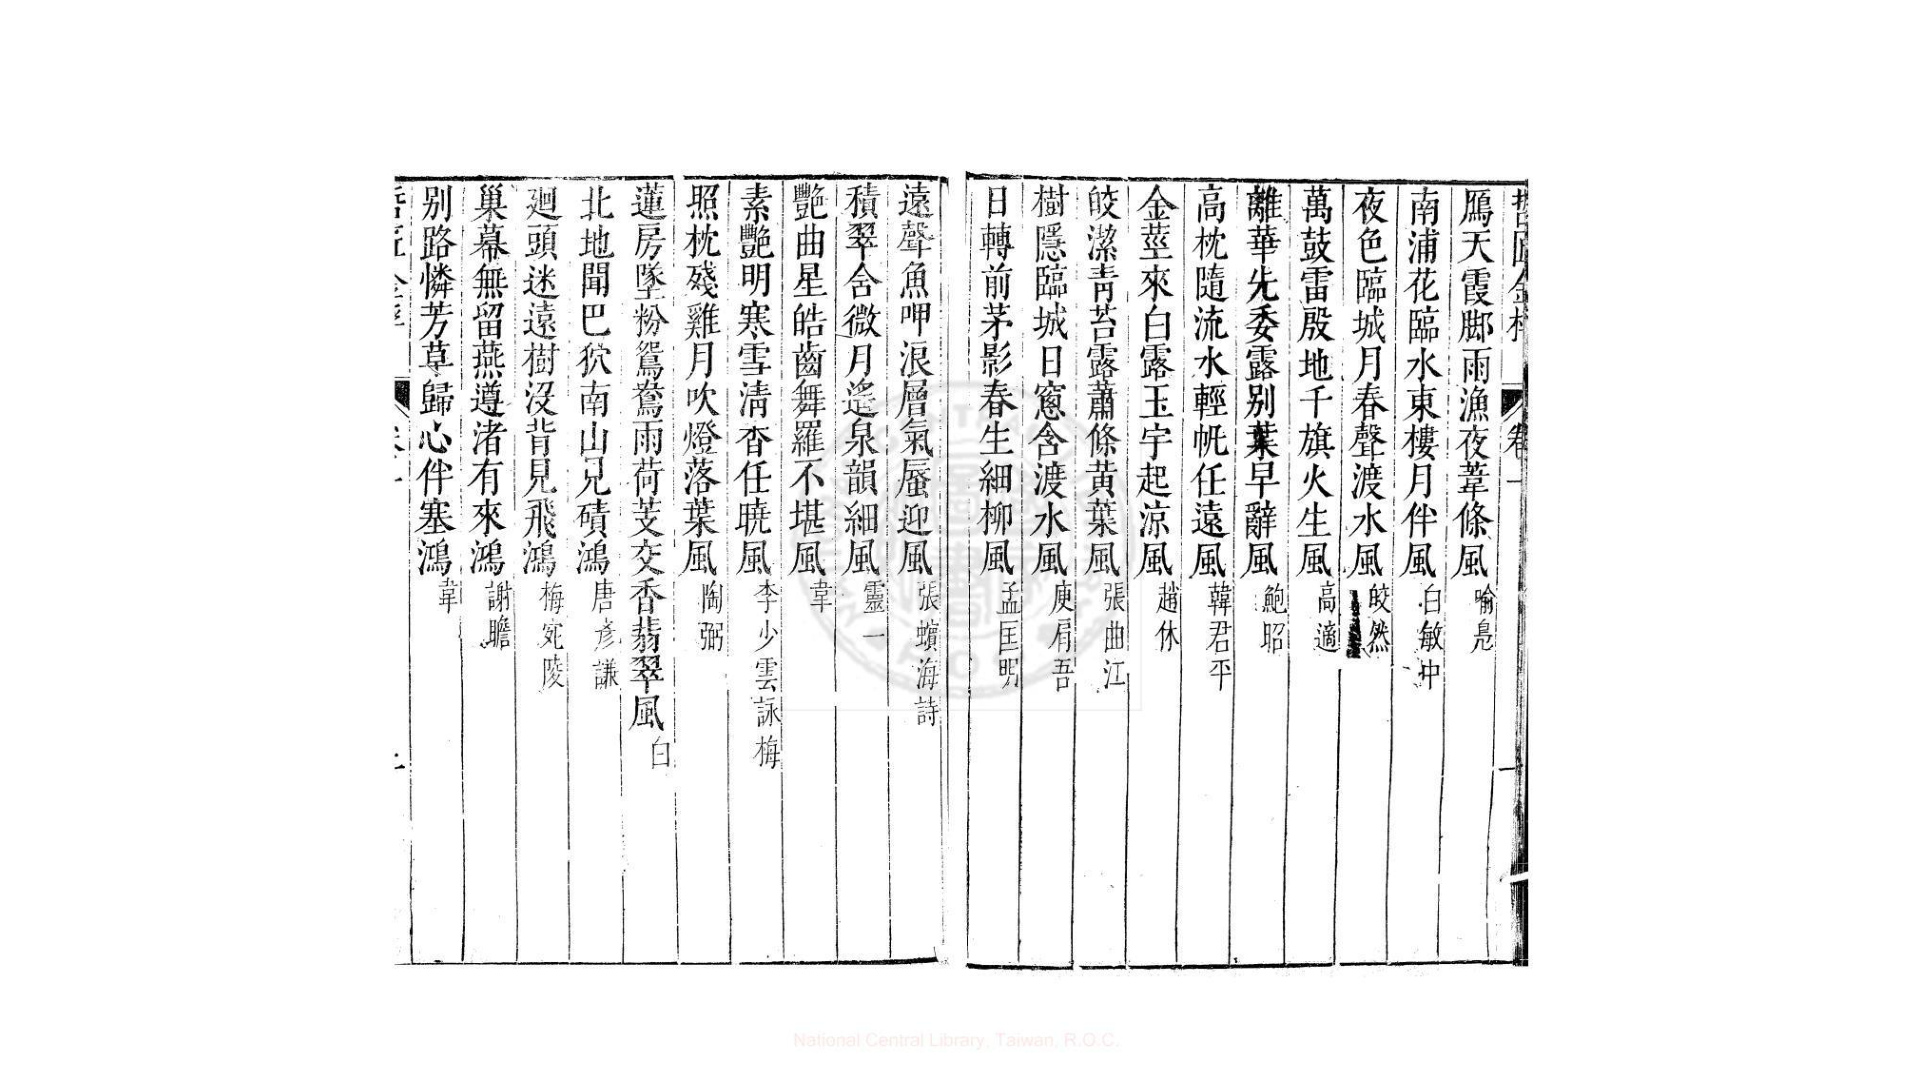 哲匠金桴 卷一 一
鴈天霞脚雨漁夜葦條風 喻鳧
南浦花臨水東樓月伴風 白敏中
夜色臨城月春聲渡水風 皎然
萬鼓雷殷地千旗火生風 高適
離華先委露别葉早辭風 鮑昭
高枕隨流水輕帆任遠風 韓君平
金莖來白露玉宇起涼風 趙休
皎潔青苔露蕭條黄葉風 張曲江
樹隱臨城日窓含渡水風 庾肩吾
日轉前茅影春生細柳風 孟匡明
遠聲魚呷浪層氣蜃迎風 張蠙海詩
積翠含微月遥泉韻細風 靈一
艷曲星皓齒舞羅不堪風 韋
素艷明寒雪清香任曉風 李少雲詠梅
照枕殘雞月吹燈落葉風 陶弼
蓮房墜粉鴛鴦雨荷芰交香翡翠風 白
北地聞巴狖南山見磧鴻 唐彦謙
廻頭迷遠樹没背見飛鴻 梅宛陵
巢幕無留燕遵渚有來鴻 謝瞻
别路憐芳草歸心伴塞鴻 韋
National Central Library, Taiwan, R.O.C.